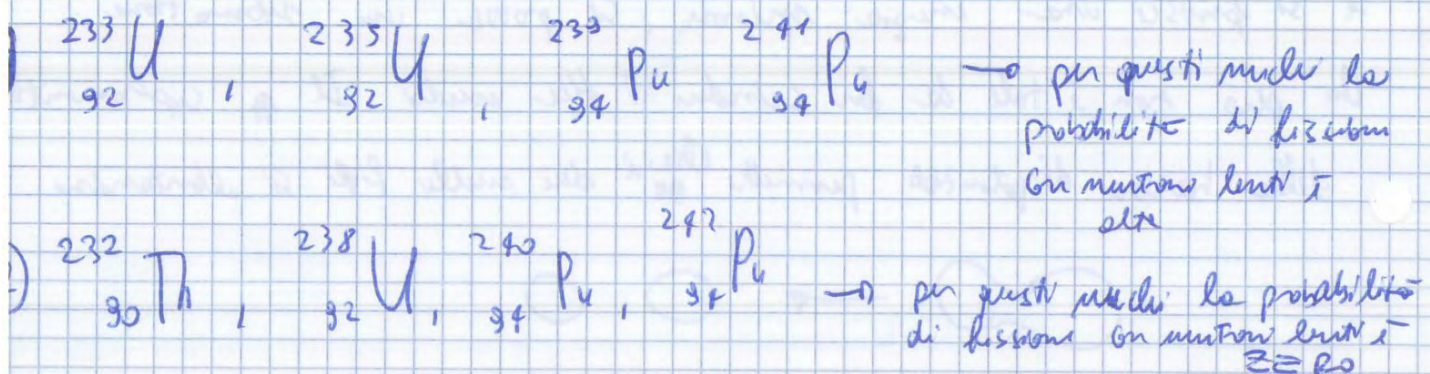 ) ²³³₉₂U , ²³⁵₉₂U , ²³⁹₉₄Pu ²⁴¹₉₄Pu → per questi nuclei la
probabilità di fissione
con neutroni lenti è
alta
) ²³²₉₀Th , ²³⁸₉₂U , ²⁴⁰₉₄Pu , ²⁴²₉₄Pu → per questi nuclei la probabilità
di fissione con neutroni lenti è
ZERO